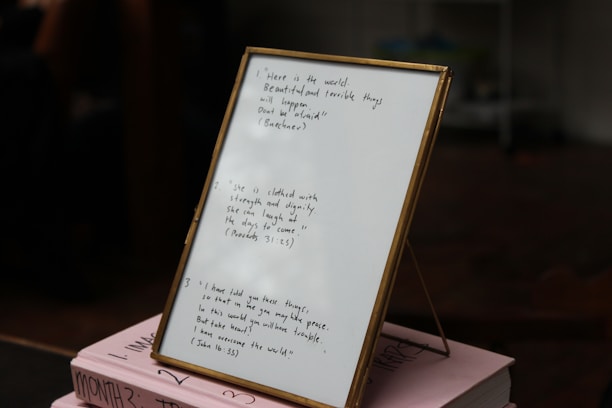 1. "Here is the world.
Beautiful and terrible things
will happen.
Dont be afraid"
(Buechner)
2. "She is clothed with
strength and dignity
she can laugh at
the days to come."
(Proverbs 31:25)
3. "I have told you these things,
so that in me you may have peace.
In this world you will have trouble.
But take heart!
I have overcome the world"
(John 16:33)
1.
2
3
MONTH 3: